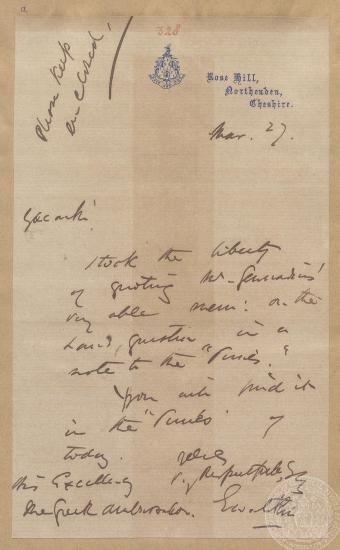 a
328
Please keep
enclosed!
Rose Hill,
Northenden,
Cheshire.
Mar. 27.
I took the liberty
of quoting Mr. Gennadius'
very able mem: on the
Land, question" in a
note to the "Times."
You will find it
in the "Times" of
today.
His Excellency
The Greek Ambassador.